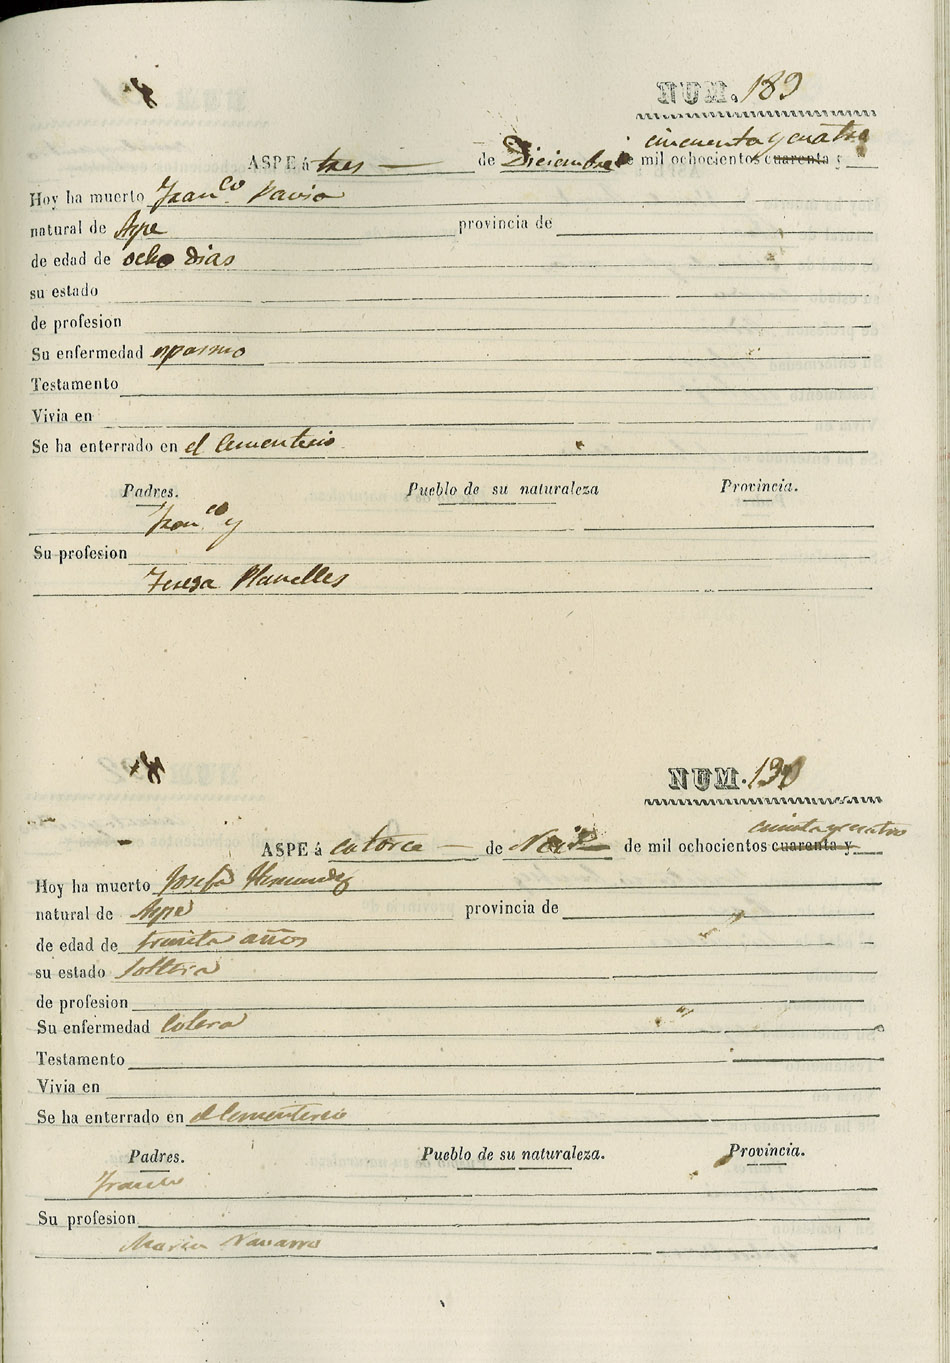 NUM. 189
cincuenta y cuatro
ASPE á tres de Diciembre de mil ochocientos cuarenta y
Hoy ha muerto Franco Pavia
natural de Aspe provincia de
de edad de ocho dias
su estado
de profesion
Su enfermedad espasmo
Testamento
Vivia en
Se ha enterrado en el Cementerio
Padres. Pueblo de su naturaleza Provincia.
Franco y
Su profesion
Teresa Planelles
NUM. 190
cincuenta y cuatro
ASPE á catorce de de mil ochocientos cuarenta y
Hoy ha muerto Josefa Hernandez
natural de Aspe provincia de
de edad de treinta años
su estado Soltera
de profesion
Su enfermedad Colera
Testamento
Vivia en
Se ha enterrado en el Cementerio
Padres. Pueblo de su naturaleza. Provincia.
Su profesion
Maria Navarro